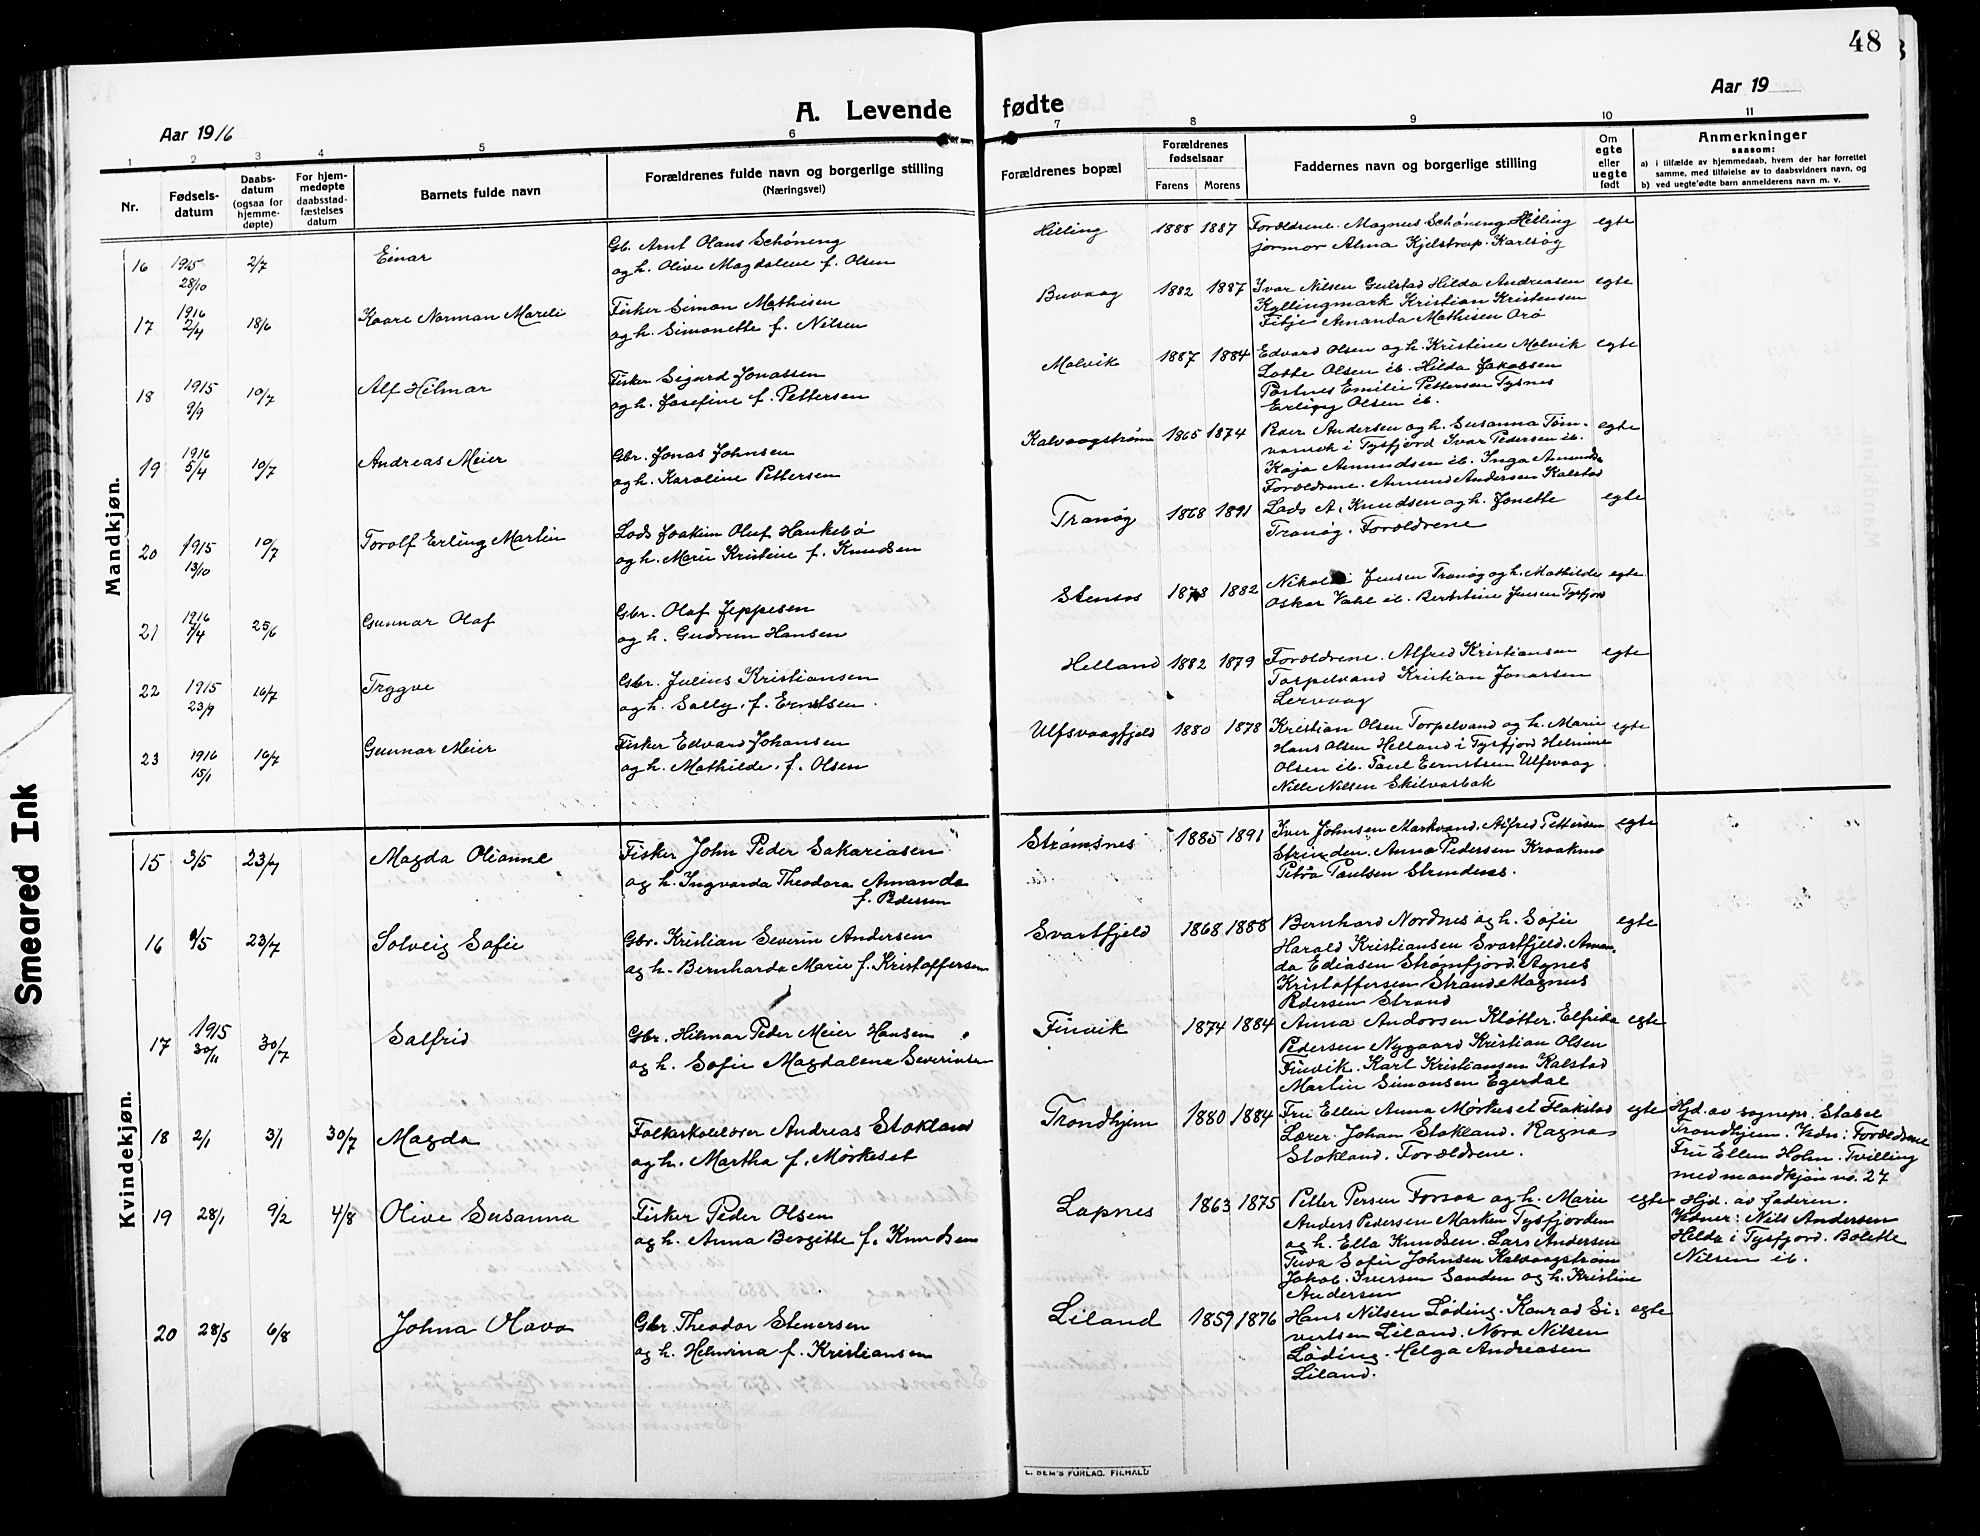 48
A. Levende fødte
Aar 1916
Aar 19
1 2 3 4 5 6 7 8 9 10 11
Nr.
Fødsels-datum
Daabs-datum (ogsaa for hjemme-døpte)
For hjem-medøpte daabsstad-fæstelses datum
Barnets fulde navn
Forældrenes fulde navn og borgerlige stilling
(Næringsvei)
Forældrenes bopæl
Forældrenes fødselsaar
Farens Morens
Faddernes navn og borgerlige stilling
Om egte eller uegte født
Anmerkninger
saasom:
a) i tilfælde av hjemmedaab, hvem der har forrettet samme, med tilføielse av to daabsvidners navn, og
b) ved uegte fødte barn anmelderens navn m. v.
Mandkjøn.
16 1915 28/10 2/7 Einar
Gb. Arnt Olaus Schøning
og h. Olive Magdalene f. Olsen
Hilling 1888 1887
Forældrene. Magnus Schøning Hilling
jormor Alma Kjelstrup. Karlsøg
egte
17 1916 2/4 18/6 Kaare Norman Mareli
Fisker Simon Mathisen
og h. Simonette f. Nilsen
Buvaag 1882 1887
Ivar Nilsen Gulstad Hilda Andreasen
Kyllingmark Kristian Kristensen
Fitje Amanda Mathisen Orø
egte
18 1915 9/9 10/7 Alf Hilmar
Fisker Sigurd Jonassen
og h. Josefine f. Pettersen
Molvik 1887 1884
Edvard Olsen og h. Kristine Molvik
Lotte Olsen ib. Hilda Jakobsen
Postnes Emilie Pettersen Tysnes
Erling Olsen ib.
egte
19 1916 5/4 10/7 Andreas Meier
Gbr. Jonas Johnsen
og h. Karoline Pettersen
Kalvaagstrøm 1865 1874
Peder Andersen og h. Susanna Tøm-
vanvik i Tysfjord Ivar Pedersen ib.
Kaja Amundsen ib. Inga Amunds.
Forældrene. Amund Andersen Kalstad
egte
20 1915 13/10 10/7 Torolf Erling Martin
Lods Joakim Oluf Hankebø
og h. Marie Kristine f. Knudsen
Tranøg 1868 1891
Lods A. Knudsen og h. Jonette
Tranøg. Forældrene
egte
21 1916 7/4 25/6 Gunnar Olaf
Gbr. Olaf Jeppesen
og h. Gudrun Hansen
Stensos 1878 1882
Nikolai Jensen Tranøg og h. Mathilde
Oskar Vahl ib. Berntine Jensen Tysfjord
egte
22 1915 23/9 16/7 Trygve
Gbr. Julius Kristiansen
og h. Sally. f. Ernstsen.
Helland 1882 1879
Forældrene. Alfred Kristiansen
Torpelvand Kristian Jonassen
Lervaag
egte
23 1916 15/1 16/7 Gunnar Meier
Fisker Edvard Johansen
og h. Mathilde. f. Olsen
Ulfsvaagfjeld 1880 1878
Kristian Olsen Torpelvand og h. Marie
Hans Olsen Helland i Tysfjord Helmine
Olsen ib. Paul Ernstsen Ulfsvaag.
Nille Nilsen Skilvasbak
egte
Kvindekjøn.
15 3/5 23/7 Magda Olianne
Fisker John Peder Sakariasen
og h. Ingvarda Theodora Amanda
f. Pedersen
Strømsnes 1885 1891
Iver Johnsen Markvand. Alfred Pettersen
Strinden. Anna Pedersen Kraakmo
Petra Paulsen Strindnes.
egte
16 9/5 23/7 Solveig Sofie
Gbr. Kristian Severin Andersen
og h. Bernharda Marie f. Kristoffersen
Svartfjeld 1868 1888
Bernhard Nordnes og h. Sofie
Harald Kristiansen Svartfjeld. Aman-
da Ediasen Strømfjord. Agnes
Kristoffersen Strand Magnus
Pedersen Strand
egte
17 1915 30/11 30/7 Salfrid
Gbr. Hilmar Peder Meier Hansen
og h. Sofie Magdalena Severinsen
Finvik 1874 1884
Anna Andorsen Kløtter. Elfrida
Pedersen Nygaard Kristian Olsen
Finvik. Karl Kristiansen Kalstad
Martin Simonsen Egerdal
egte
18 2/1 3/1 30/7 Magda
Folkeskolelærer Andreas Stokland
og h. Martha f. Mørkeset
Trondhjem 1880 1884
Fru Ellen Anna Mørkeset Flakstad
Lærer Johan Stokland. Ragna
Stokland. Forældrene.
egte
Hjd. av sognepr. Stabel
Trondhjem. Vidn: Forældrene
Fru Ellen Holm. Tvilling
med mandkjøn no. 27
19 28/1 9/2 4/8 Olive Susanna
Fisker Peder Olsen
og h. Anna Bergitte f. Knudsen
Lapnes 1863 1875
Petter Persen Forsaa og h. Marie
Anders Pedersen Marken Tysfjorden
og h. Ella Knudsen. Lars Andersen
Tuva Sofie Johnsen Kalvaagstrøm
Jakob. Iversen Sanden og h. Kristine
Andersen
egte
Hjd. av faderen.
Vidner: Nils Andersen
Helda i Tysfjord. Bolette
Nilsen ib.
20 28/5 6/8 Johna Olava
Gbr. Theodor Stenersen
og h. Helmina f. Kristiansen
Liland 1859 1876
Hans Nilsen Løding. Konrad Si-
vertsen Liland. Nora Nilsen
Løding. Helga Andreasen
Liland.
egte
Smeared Ink
E. SEM'S FORLAG. FR.HALD